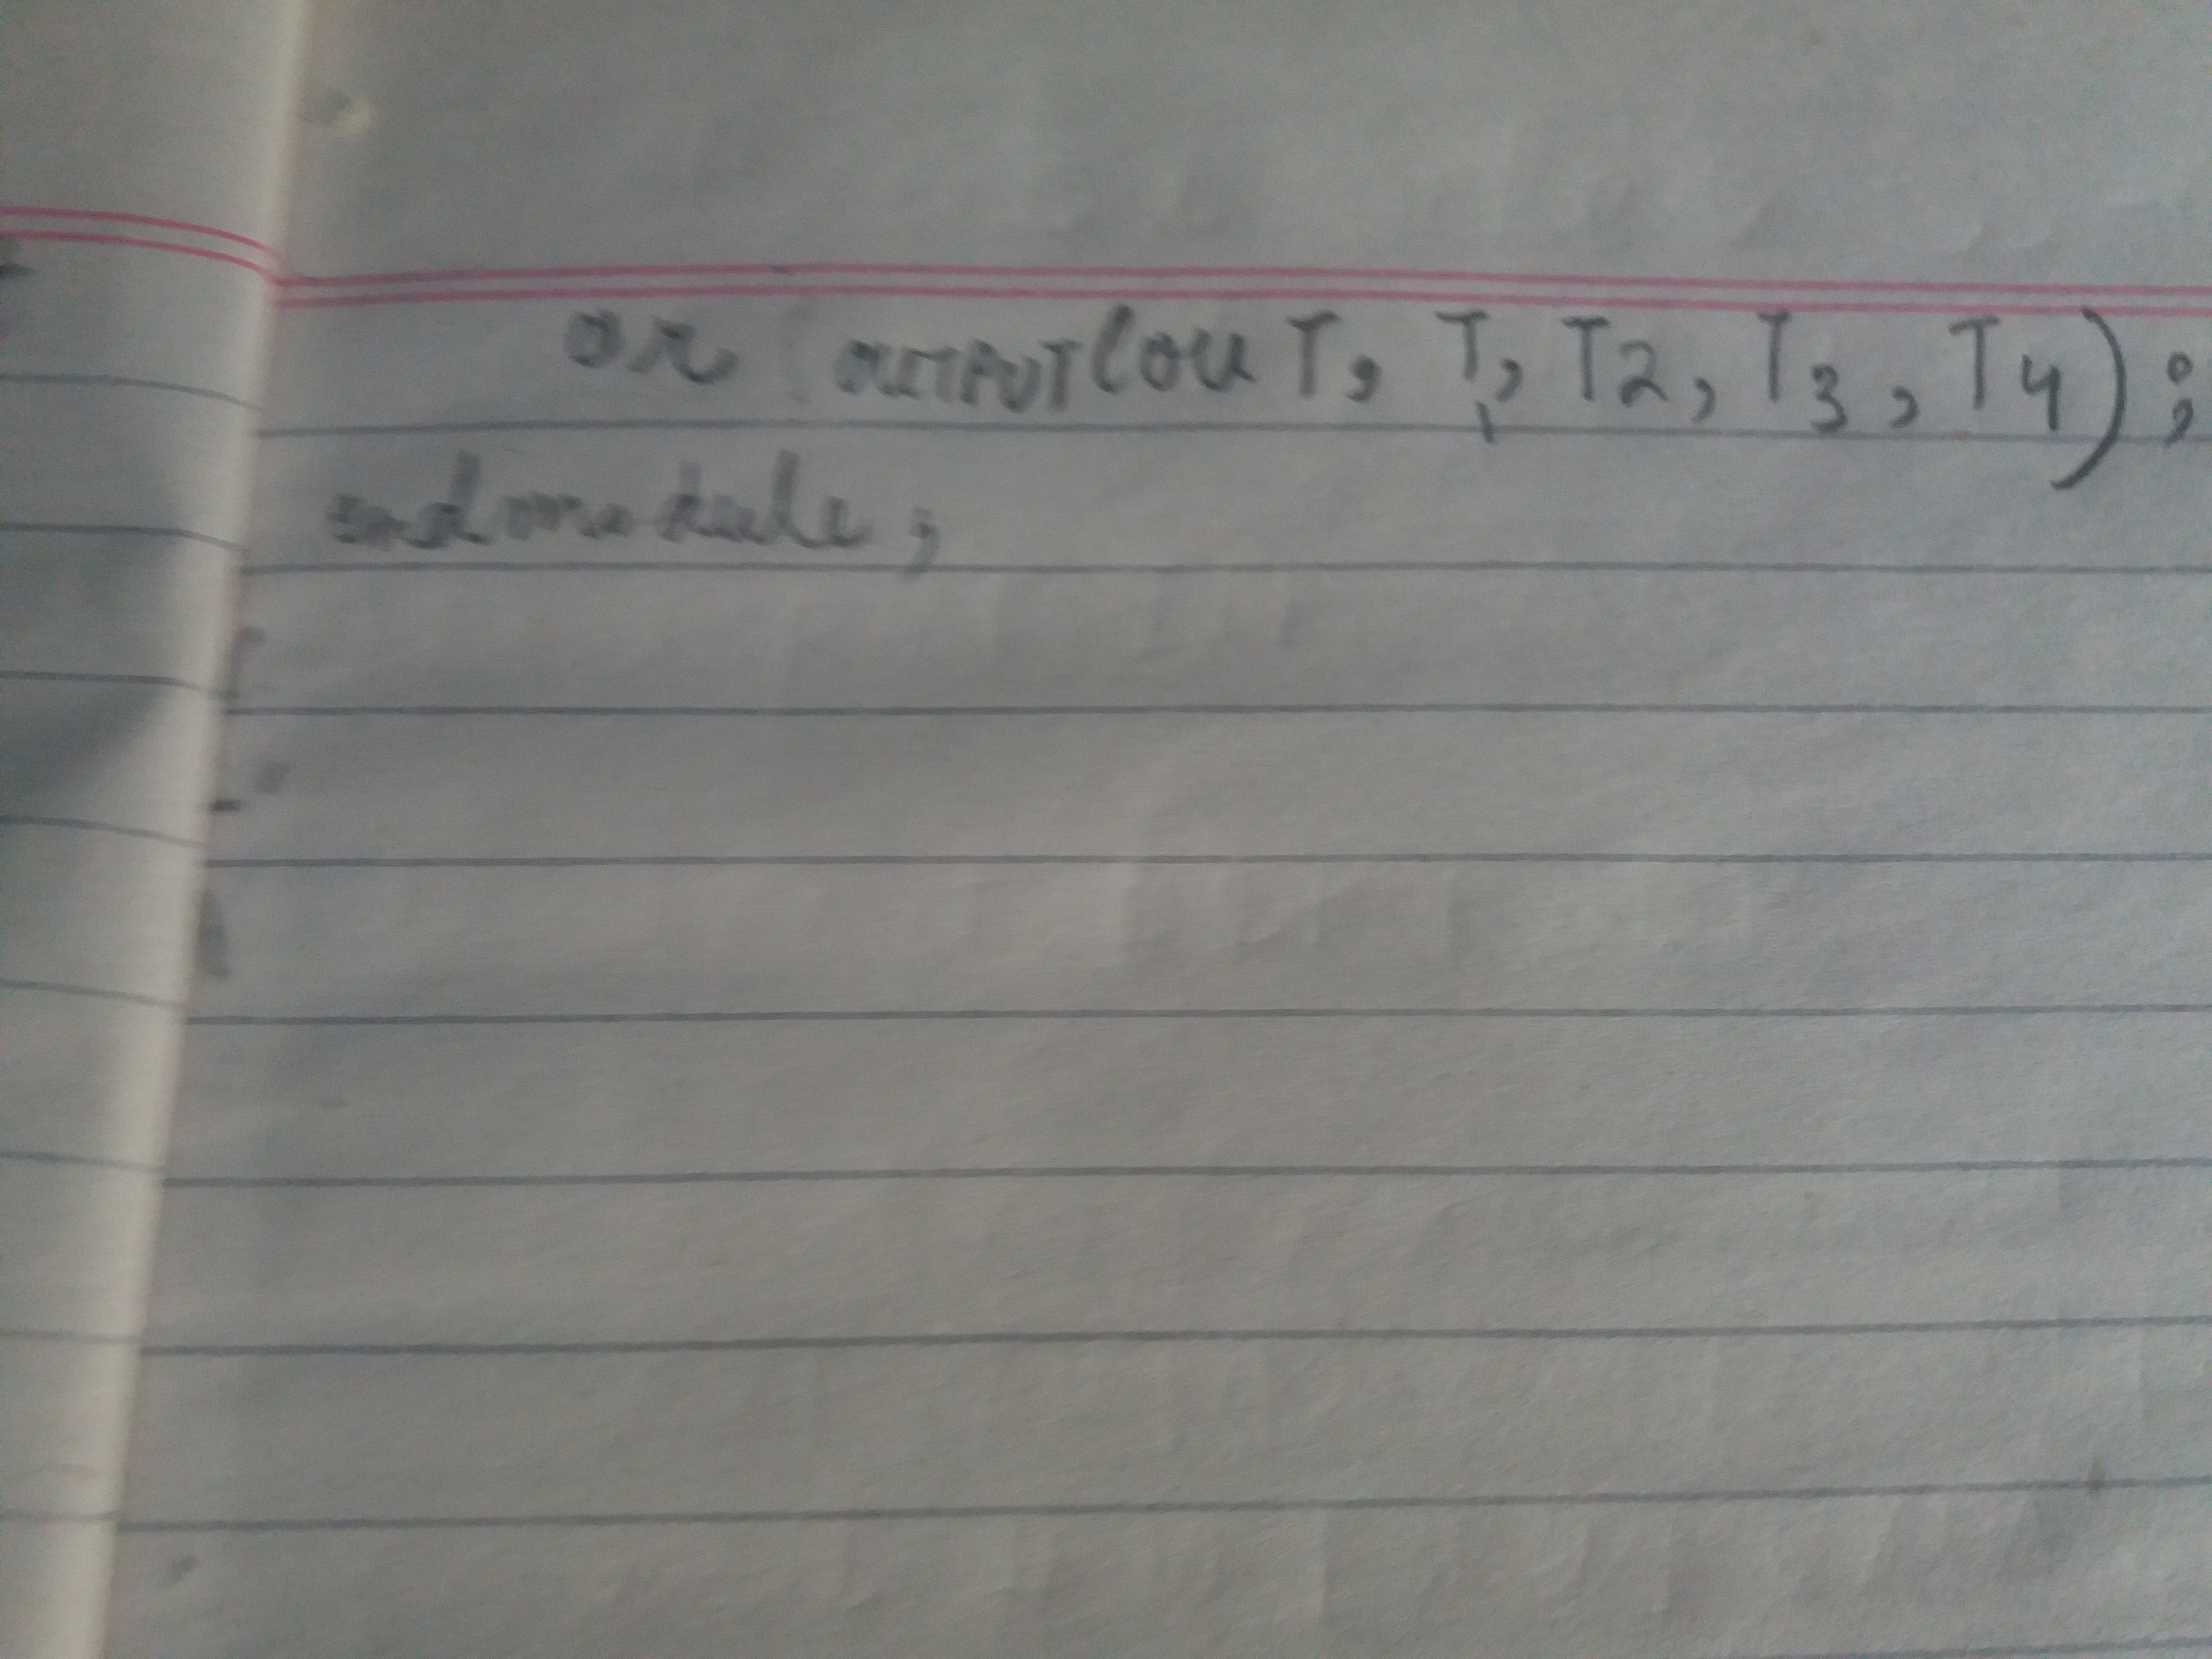 or OUTPUT(OUT, T1, T2, T3, T4);
endmodule;